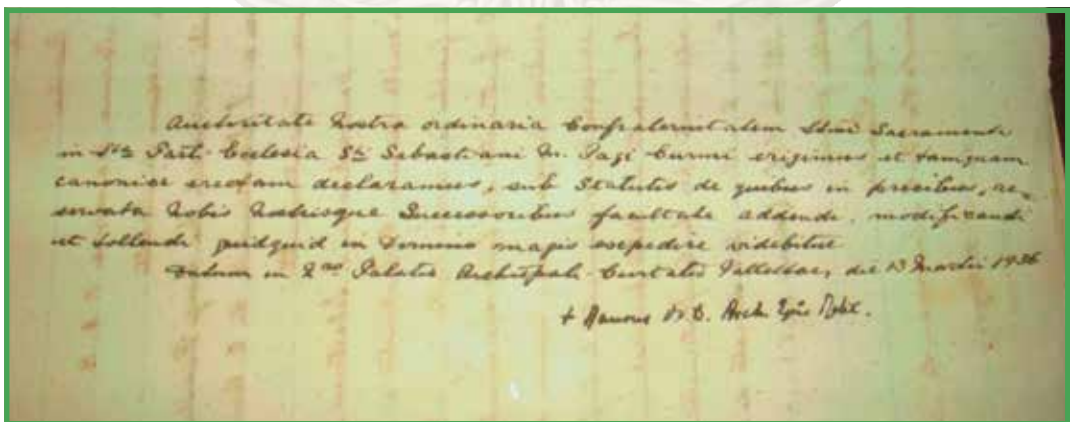 Auctoritate Nostra ordinaria Confraternitatem SSmi Sacramenti
in Sta Paral Ecclesia Sti Sebastiani M. Pagi Curmi erigimus et tamquam
canonice erectam declaramus, sub Statutis de quibus in precibus, re-
servata Nobis Nostrisque Successoribus facultate addendi, modificandi
et tollendi quidquid in Domino magis expedire videbitur
Datum in Palatio Archiepali Civitatis Vallettae, die 13 Martii 1936
+ Maurus O.S.B. Arch. Epus Melit.